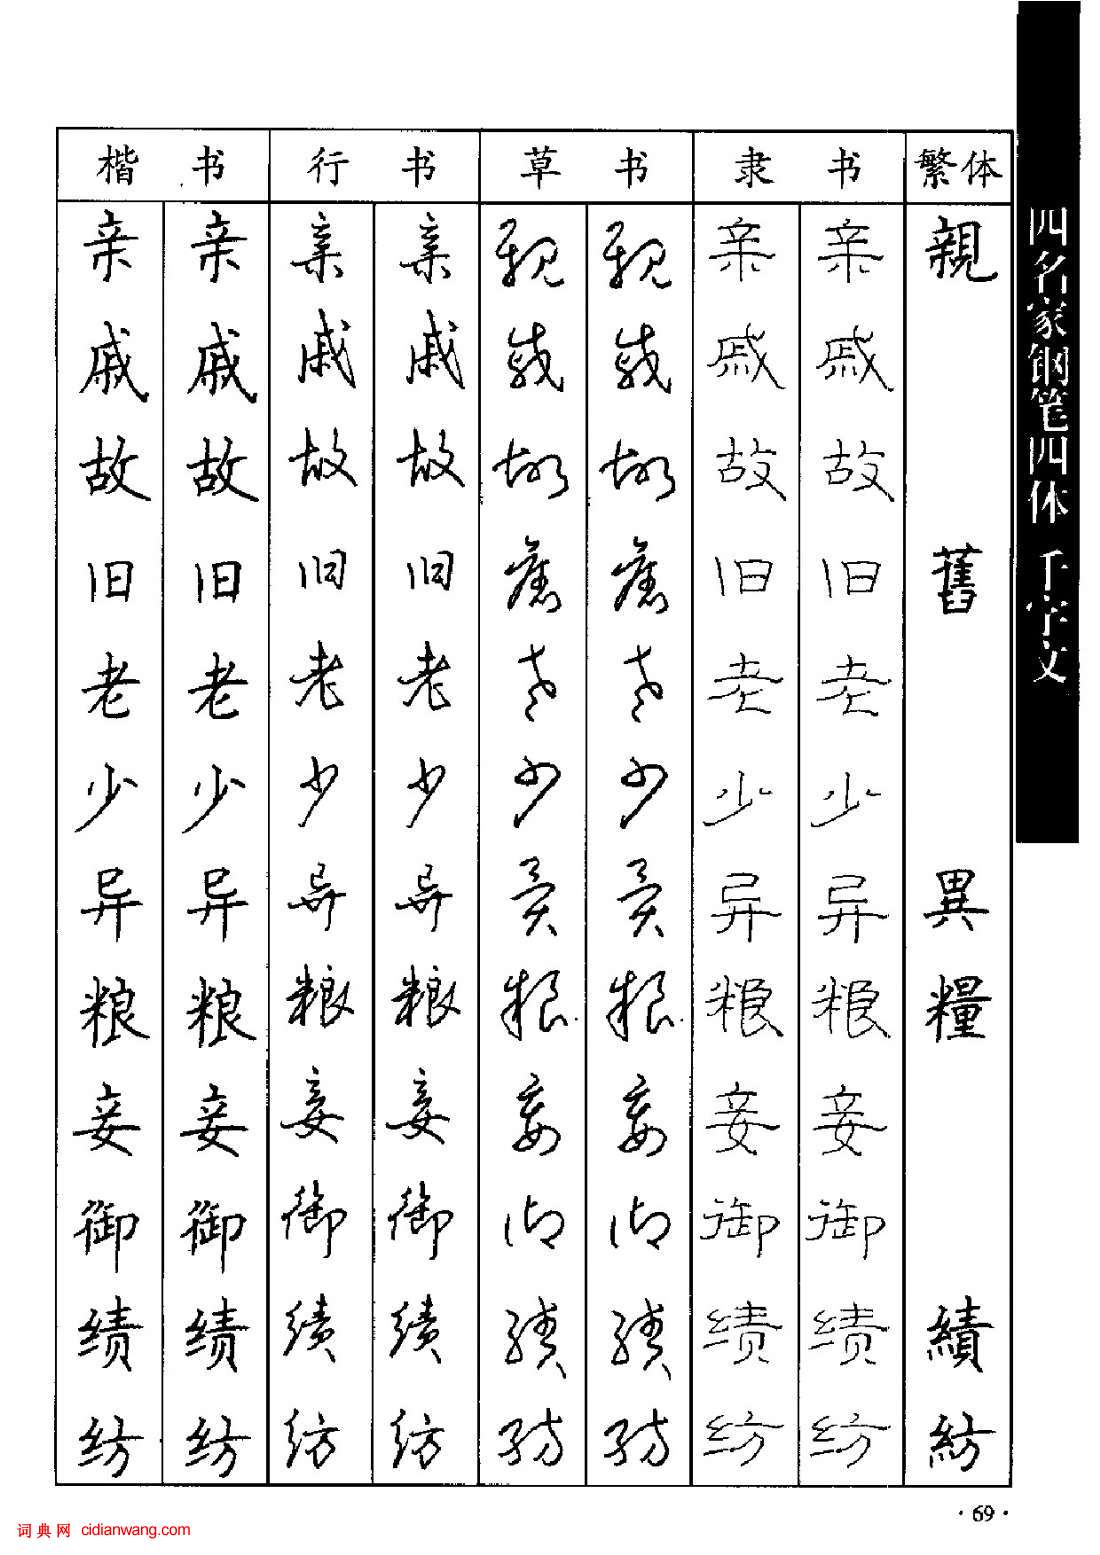 楷书 行书 草书 隶书 繁体
亲 亲 亲 亲 亲 亲 亲 亲 親
戚 戚 戚 戚 戚 戚 戚 戚
故 故 故 故 故 故 故 故
旧 旧 旧 旧 舊 舊 旧 旧 舊
老 老 老 老 老 老 老 老
少 少 少 少 少 少 少 少
异 异 异 异 異 異 异 异 異
粮 粮 粮 粮 粮 粮 粮 粮 糧
妾 妾 妾 妾 妾 妾 妾 妾
御 御 御 御 御 御 御 御
绩 绩 绩 绩 績 績 绩 绩 績
纺 纺 纺 纺 紡 紡 纺 纺 紡
四名家钢笔四体 千字文
·69·
词典网 cidianwang.com